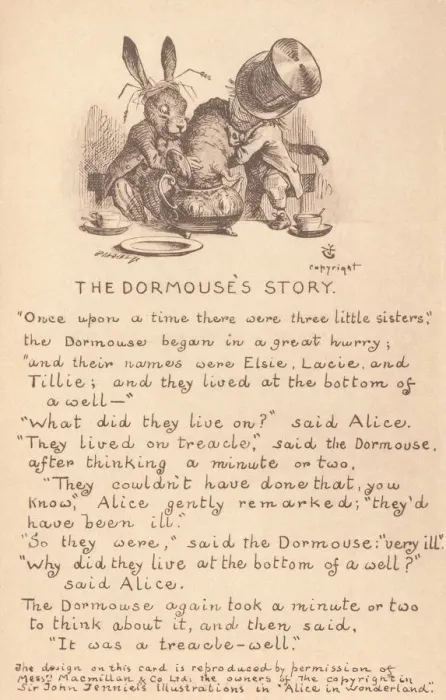 copyright
THE DORMOUSE'S STORY.
"Once upon a time there were three little sisters,"
the Dormouse began in a great hurry;
"and their names were Elsie, Lacie, and
Tillie; and they lived at the bottom of
a well—"
"What did they live on?" said Alice.
"They lived on treacle," said the Dormouse,
after thinking a minute or two.
"They couldn't have done that, you
know," Alice gently remarked; "they'd
have been ill."
"So they were," said the Dormouse: "very ill".
"Why did they live at the bottom of a well?"
said Alice.
The Dormouse again took a minute or two
to think about it, and then said,
"It was a treacle-well."
The design on this card is reproduced by permission of
Messrs Macmillan & Co Ltd; the owners of the copyright in
Sir John Tenniel's Illustrations to "Alice in Wonderland".